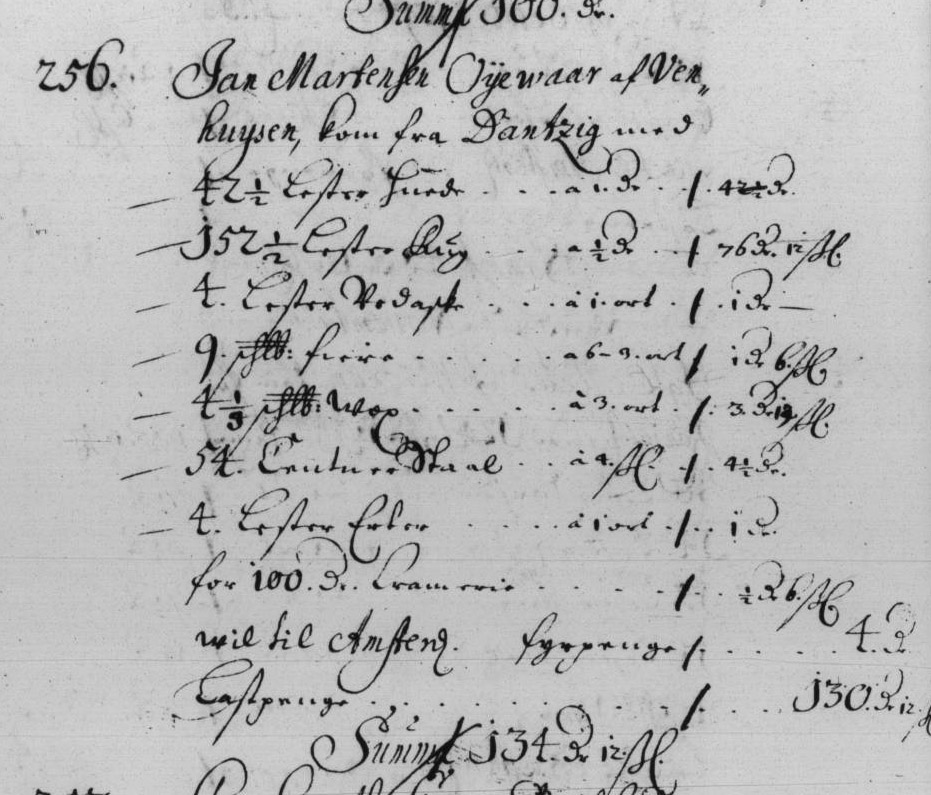 Summa 100. dr.
256. Jan Martensen Oijewaar af Ven„
huysen, kom fra Dantzig med
42 1/2 Lester Huede . . . a 1. dr . / . 42 1/2 dr.
152 1/2 Lester Rug . . . a 1/2 dr . . / . 76 dr. 12 ß.
4. Lester Vedaske . . . à 1. ort . / . 1 dr —
9. schlb: fiere . . . . . a 6 - 3. ort / 1 dr 6. ß
4 1/3 schlb: Wox . . . . . . à 3. ort . / . 3. dr 12 ß.
54. Centner Staal . . à 4. ß. . / . 4 1/2 dr.
4. Lester Erter . . . . . à 1 ort . / . . 1 dr.
for 100. dr. Kramerie . . . . . . / . . 1/2 dr 6. ß
wil til Amsterd. fyrpenge / . . . . . 4. dr
Lastpenge . . . . . . . . . . / . . . . 130. dr 12. ß
Summa 134. dr 12. ß.